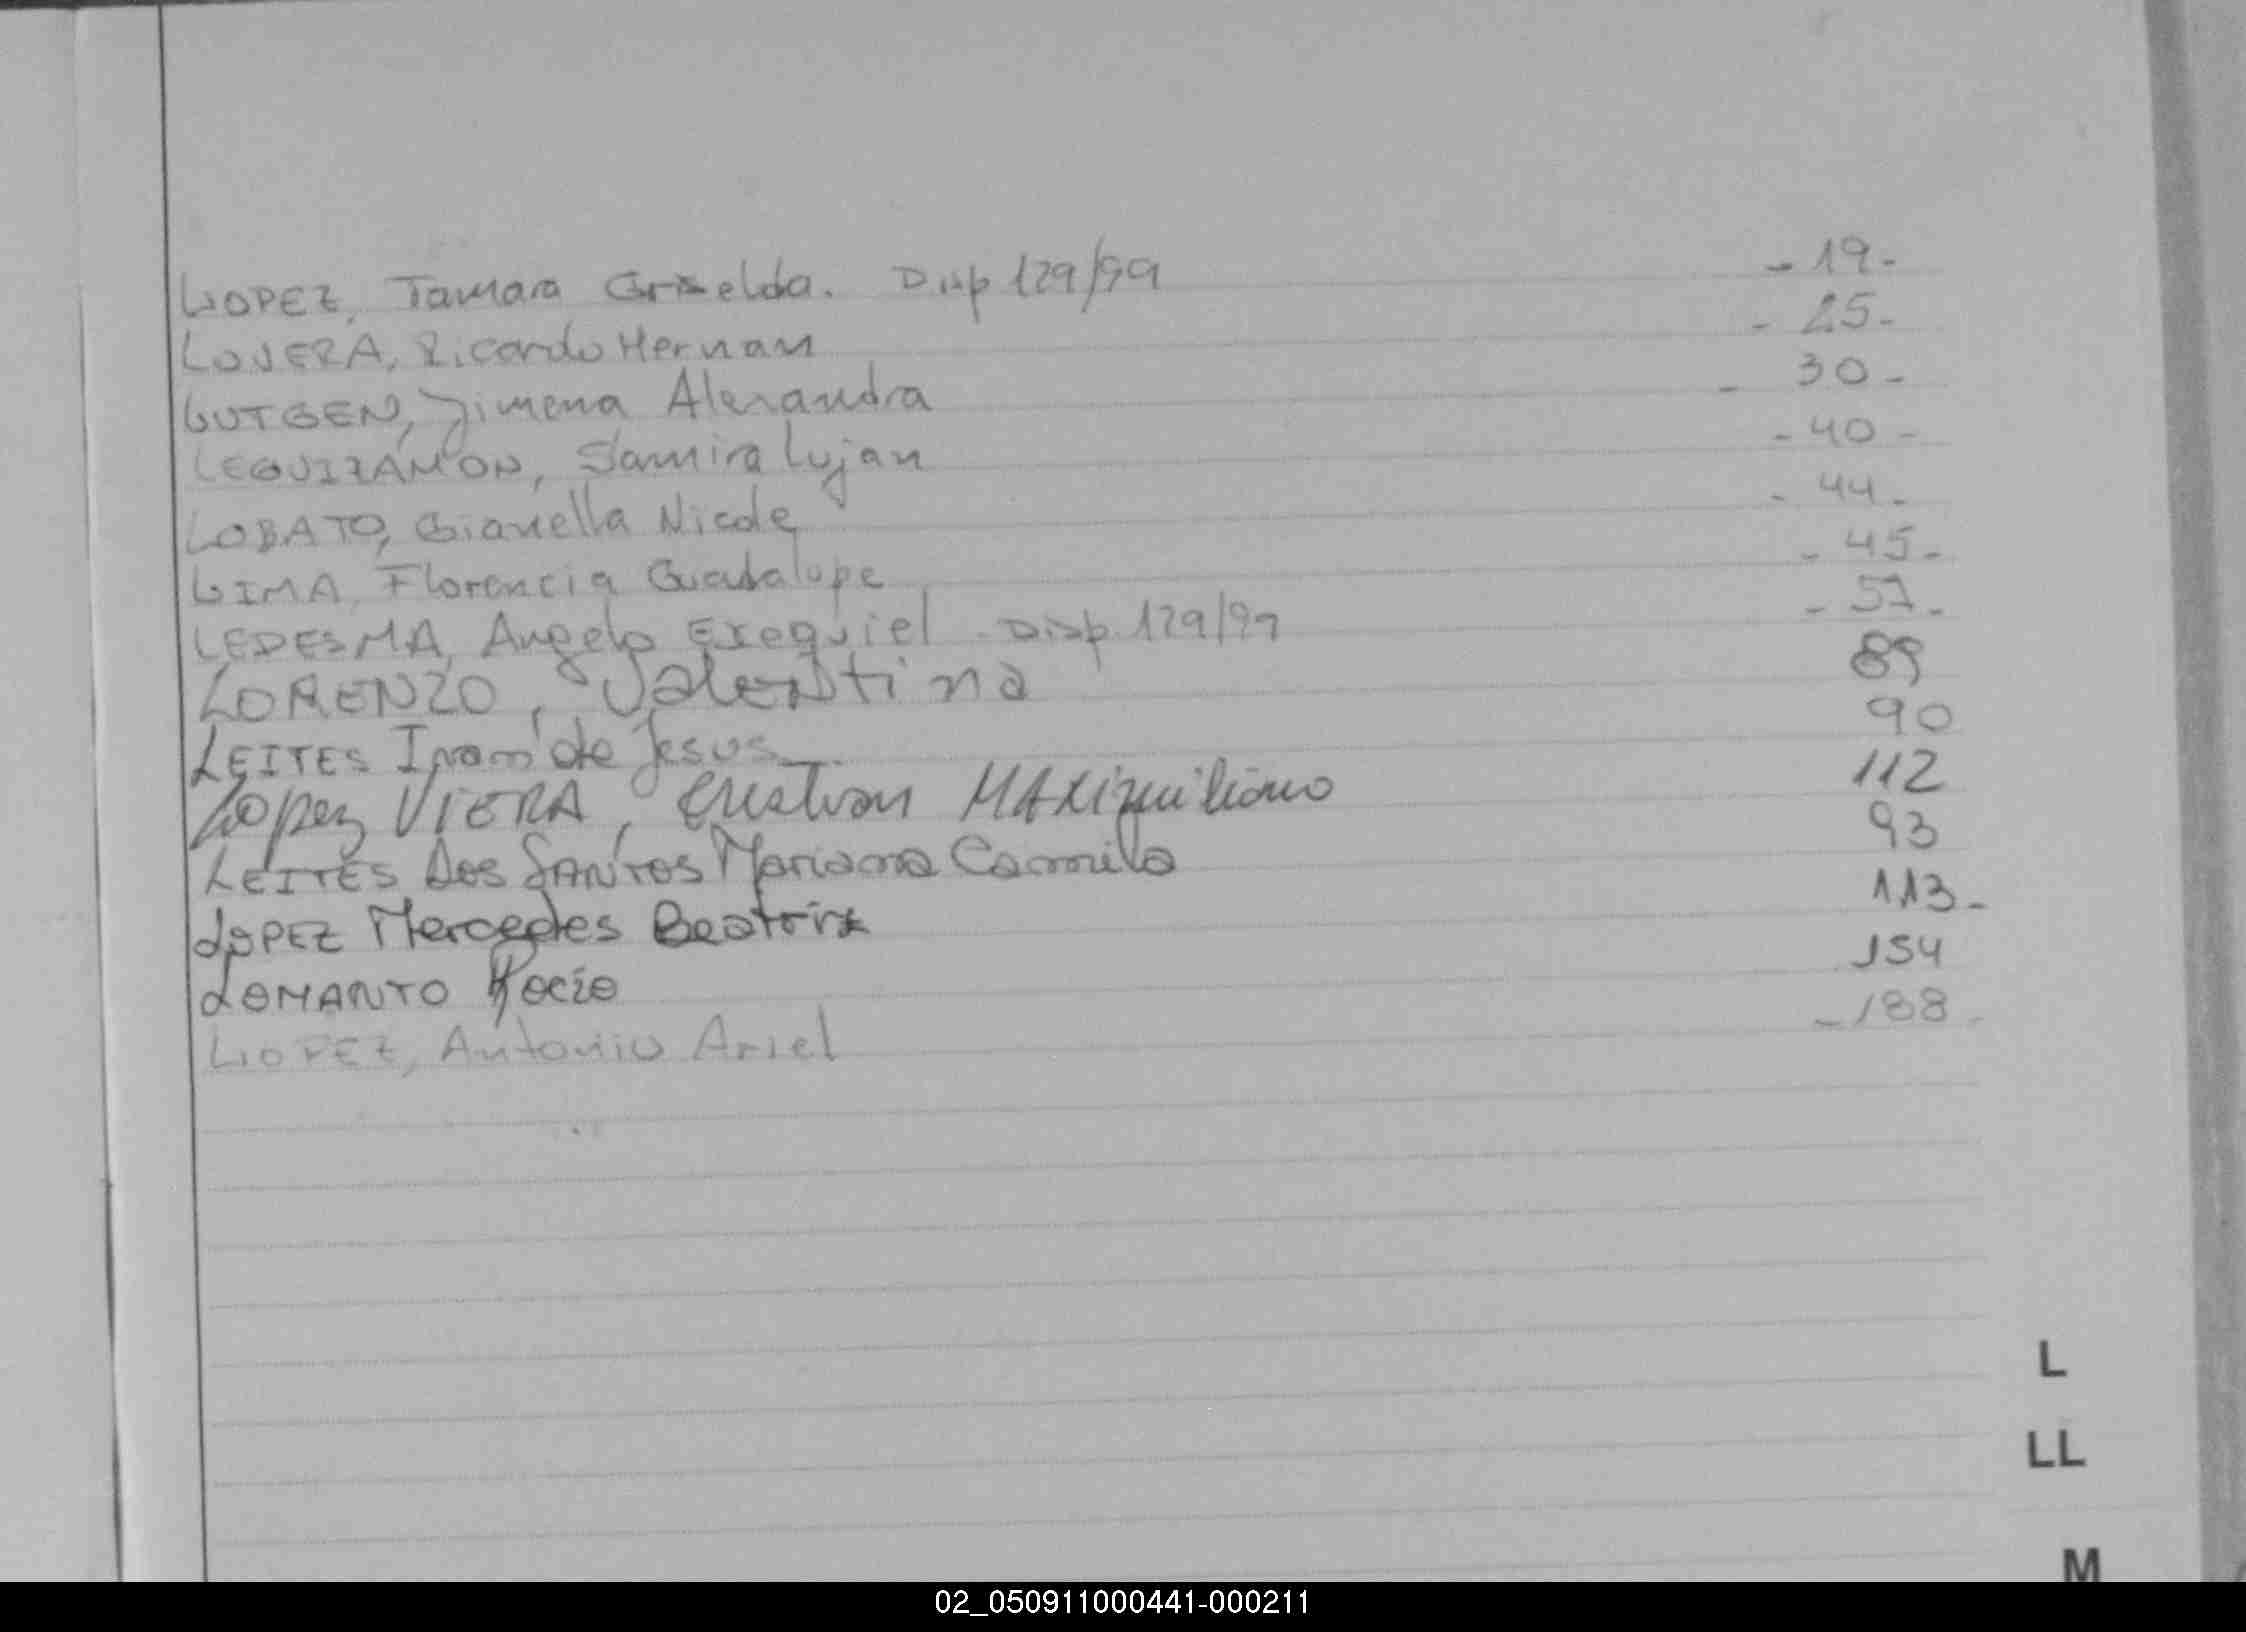 LOPEZ, Tamara Griselda. Disp 129/99 - 19 -
LOVERA, Ricardo Hernan - 25 -
LUTGEN, Jimena Alexandra - 30 -
LEGUIZAMON, Samira Lujan - 40 -
LOBATO, Gianella Nicole - 44 -
LIMA, Florencia Guadalupe - 45 -
LEDESMA, Angelo Exequiel - Disp. 129/99 - 57 -
LORENZO, Valentina 89
LEITES Ivan de Jesus 90
Lopez VIERA, Cristian MAXimiliano 112
LEITES Dos SANTOS Mariana Camila 93
LOPEZ Mercedes Beatriz 113 -
LOMANTO Rocio 154
LOPEZ, Antonio Ariel - 188 -
L
LL
M
02_050911000441-000211